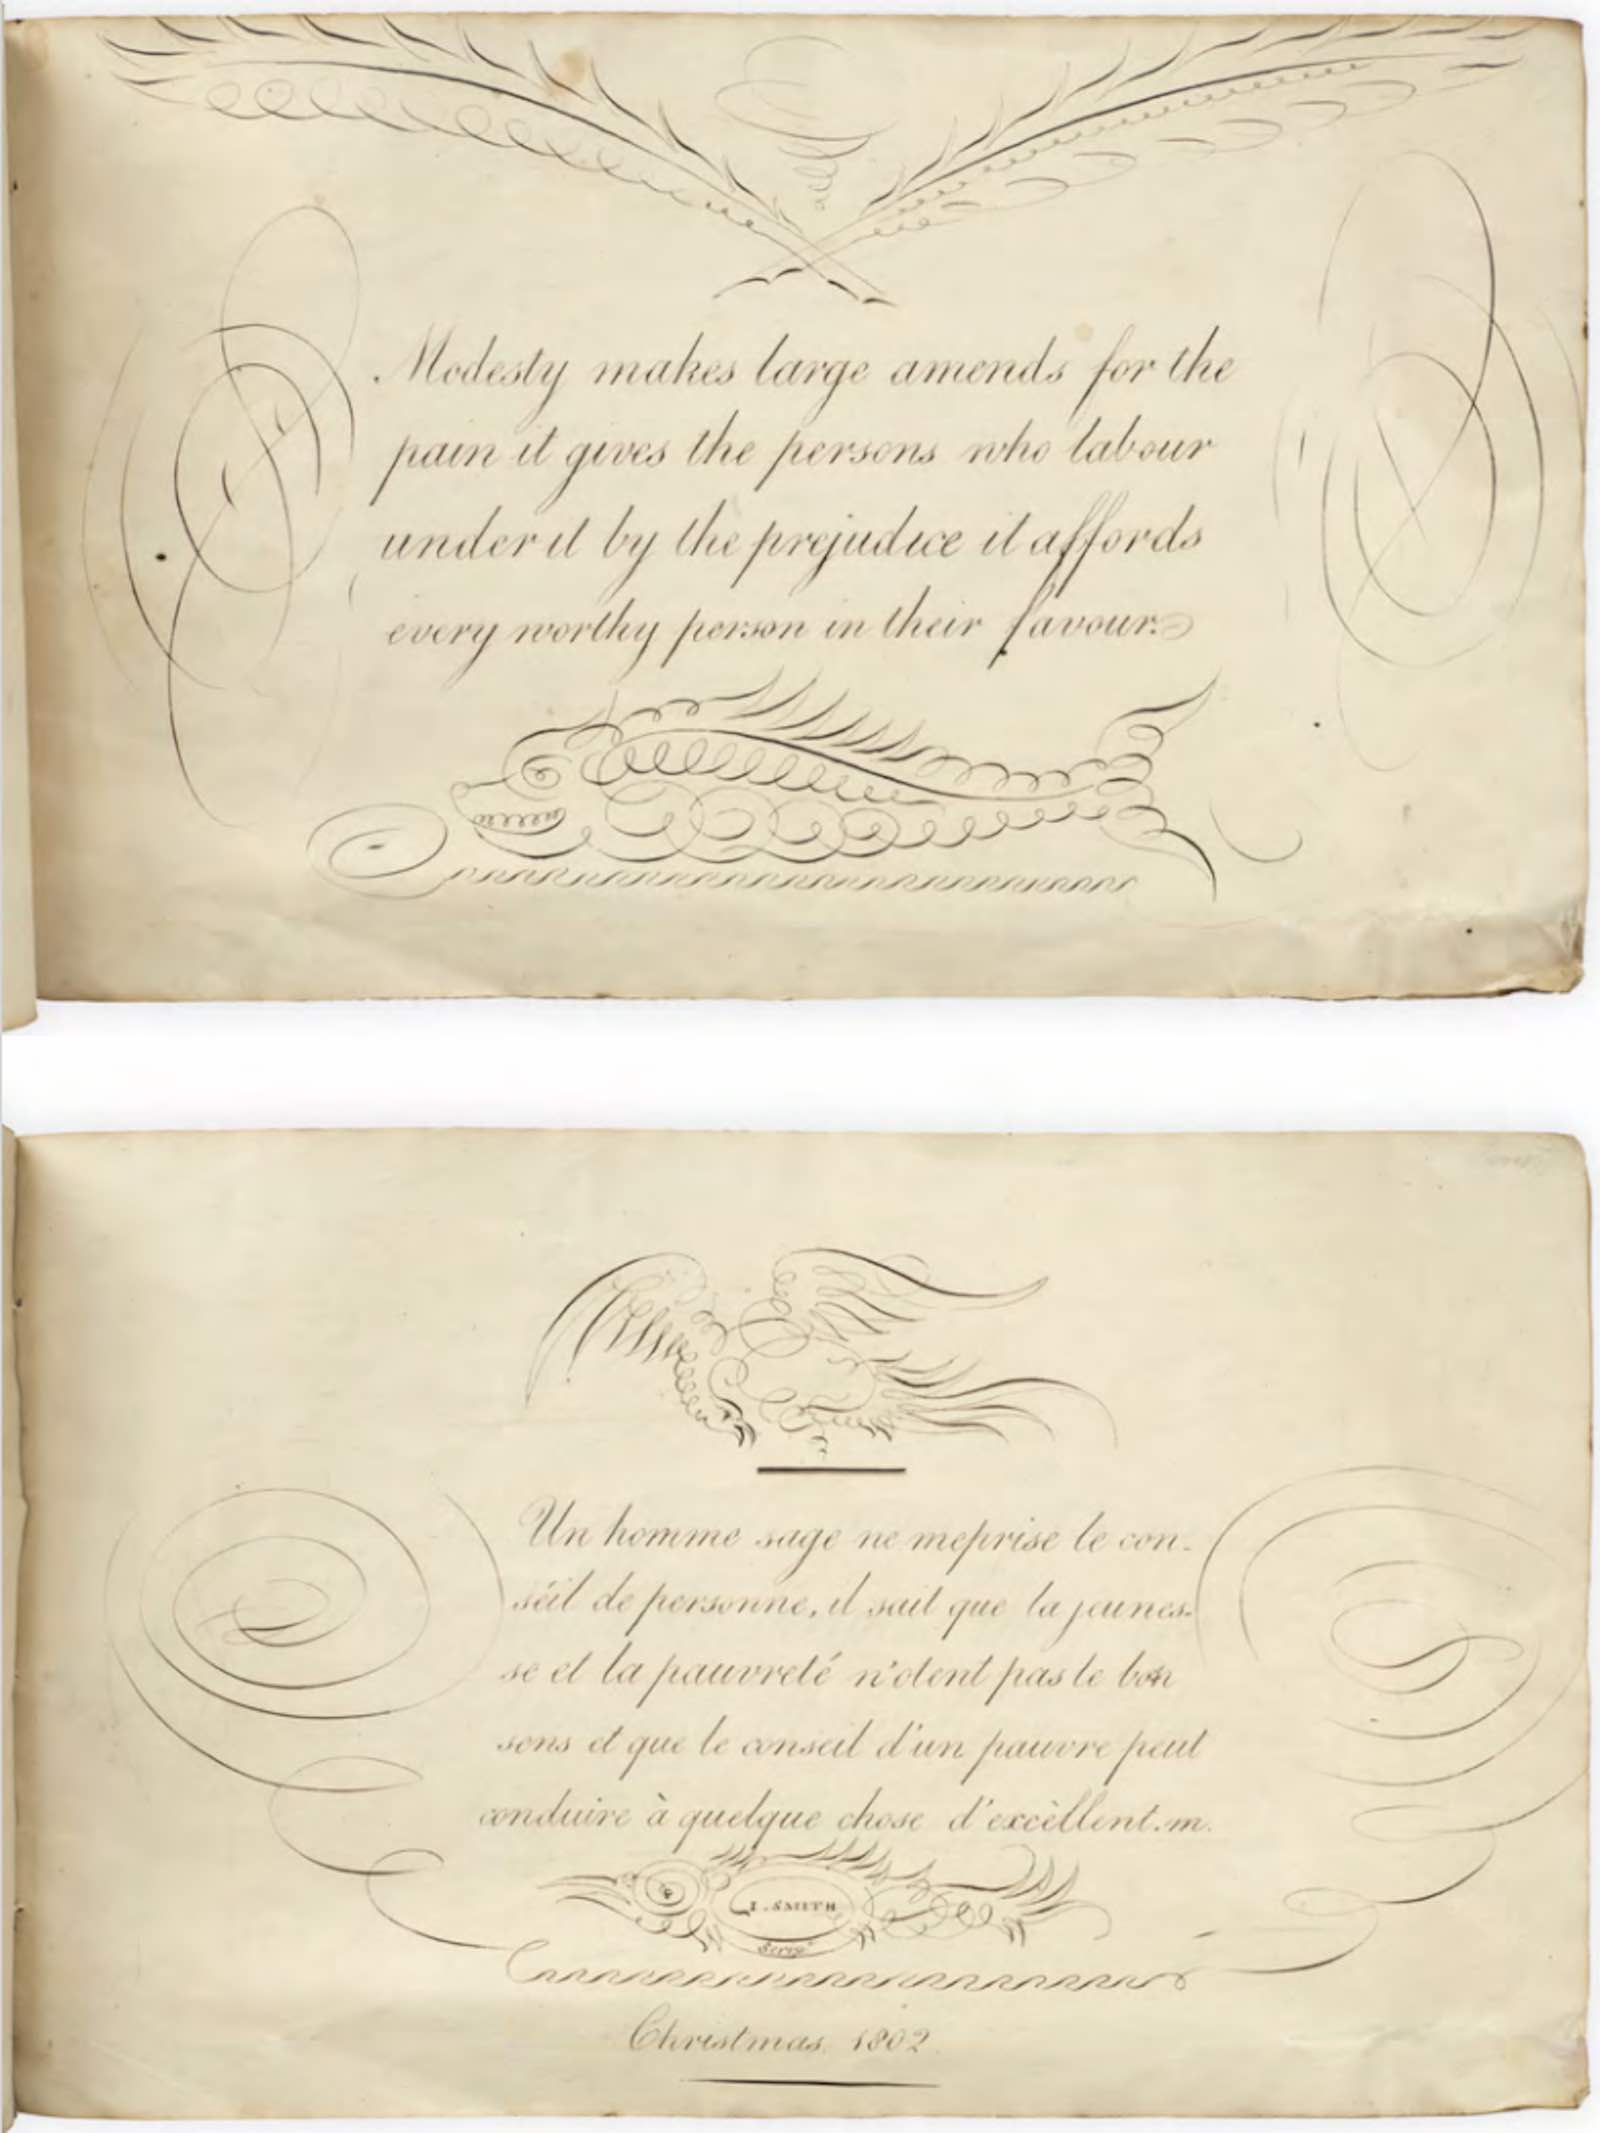 Modesty makes large amends for the
pain it gives the persons who labour
under it by the prejudice it affords
every worthy person in their favour.
Un homme sage ne meprise le con-
séil de personne, il sait que la jeunes-
se et la pauvreté n'otent pas le bon
sens et que le conseil d'un pauvre peut
conduire à quelque chose d'excèllent. m.
I. SMITH
Christmas, 1802.